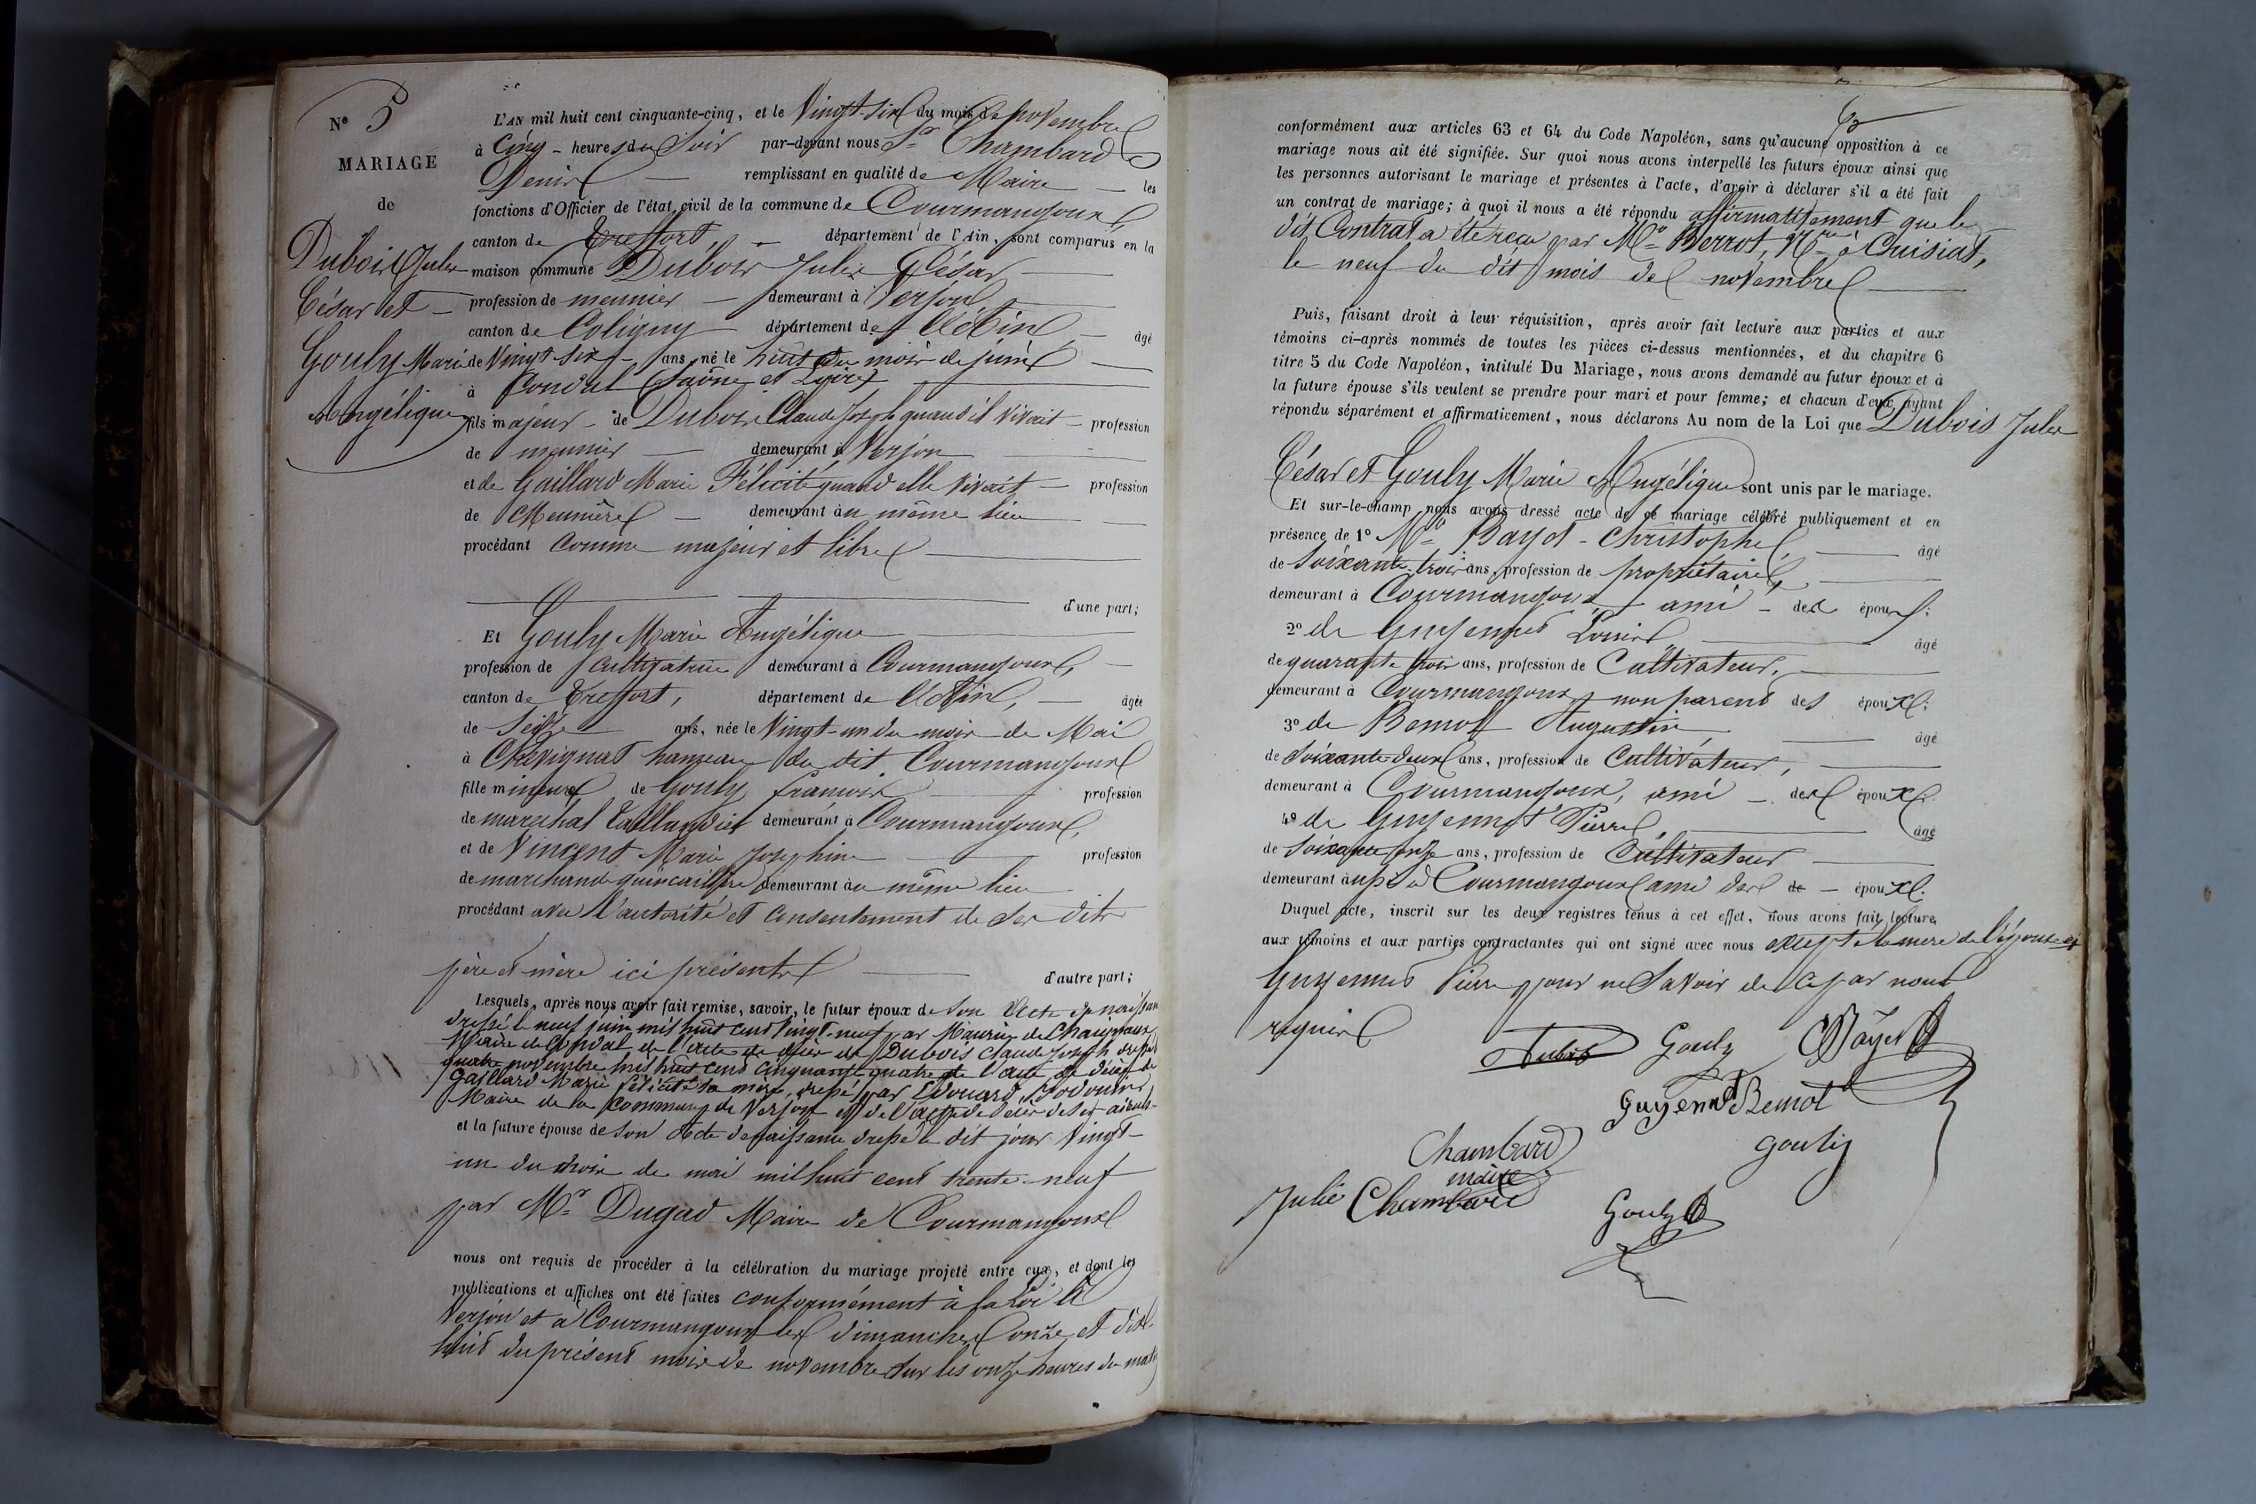 N° 5
MARIAGE
de
Dubois Jules
César et
Gouly Marie
Angélique
L'AN mil huit cent cinquante-cinq, et le Vingt-six du mois de novembre
à Cinq heures du Soir par-devant nous Sr Chambard
Denis remplissant en qualité de Maire les
fonctions d'Officier de l'état civil de la commune de Courmangoux,
canton de Treffort, département de l'Ain, sont comparus en la
maison commune Dubois Jules César
profession de meunier demeurant à Verjon,
canton de Coligny département de l'Ain, âgé
de Vingt six ans, né le huit du mois de juin
à Condal (Saône et Loire)
fils majeur de Dubois Claude Joseph quand il vivait profession
de meunier demeurant à Verjon
et de Gaillard Marie Félicité quand elle vivait profession
de Meunière demeurant au même lieu
procédant comme majeur et libre
d'une part;
Et Gouly Marie Angélique
profession de Cultivatrice demeurant à Courmangoux,
canton de Treffort, département de l'Ain, âgée
de Seize ans, née le Vingt-un du mois de Mai
à Chevignat hameau du dit Courmangoux
fille mineure de Gouly François profession
de maréchal Taillandier demeurant à Courmangoux,
et de Vincent Marie Joséphine profession
de marchande quincaillère demeurant au même lieu
procédant avec l'autorité et consentement de ses dits
père et mère ici présents
d'autre part;
Lesquels, après nous avoir fait remise, savoir, le futur époux de son Acte de naissance
dressé le neuf juin mil huit cent vingt-neuf par Maurin de Champvaux
Maire de Condal de l'acte de décès de Dubois Claude Joseph dressé
quatre novembre mil huit cent cinquante quatre de l'acte de décès de
Gaillard Marie Félicité sa mère, dressé par Edouard
Maire de la Commune de Verjon et de l'acte de décès de ses aïeuls
et la future épouse de Son Acte de naissance dressé le dit jour Vingt-
un du mois de mai mil huit cent trente-neuf
par Mr Dugad Maire de Courmangoux
nous ont requis de procéder à la célébration du mariage projeté entre eux, et dont les
publications et affiches ont été faites conformément à la Loi à
Verjon et à Courmangoux les dimanches onze et dix-
huit du présent mois de novembre sur les onze heures du matin
conformément aux articles 63 et 64 du Code Napoléon, sans qu'aucune opposition à ce
mariage nous ait été signifiée. Sur quoi nous avons interpellé les futurs époux ainsi que
les personnes autorisant le mariage et présentes à l'acte, d'avoir à déclarer s'il a été fait
un contrat de mariage; à quoi il nous a été répondu affirmativement que le
dit Contrat a été reçu par Me Berrot, Nre à Cuisiat,
le neuf du dit mois de novembre
Puis, faisant droit à leur réquisition, après avoir fait lecture aux parties et aux
témoins ci-après nommés de toutes les pièces ci-dessus mentionnées, et du chapitre 6
titre 5 du Code Napoléon, intitulé Du Mariage, nous avons demandé au futur époux et à
la future épouse s'ils veulent se prendre pour mari et pour femme; et chacun d'eux ayant
répondu séparément et affirmativement, nous déclarons Au nom de la Loi que Dubois Jules
César et Gouly Marie Angélique sont unis par le mariage.
Et sur-le-champ nous avons dressé acte de ce mariage célébré publiquement et en
présence de 1° Mr Bayet Christophe, âgé
de Soixante trois ans, profession de propriétaire,
demeurant à Courmangoux ami des époux;
2° de Guyennet Louis âgé
de quarante trois ans, profession de Cultivateur,
demeurant à Courmangoux non parent des époux;
3° de Bernot Augustin âgé
de soixante deux ans, profession de Cultivateur,
demeurant à Courmangoux, ami des époux;
4° de Guyennet Pierre, âgé
de Soixante onze ans, profession de Cultivateur
demeurant aussi à Courmangoux ami des de époux.
Duquel acte, inscrit sur les deux registres tenus à cet effet, nous avons fait lecture
aux témoins et aux parties contractantes qui ont signé avec nous excepté la mère de l'épouse et
Guyennet Pierre pour ne Savoir de ce par nous
requis
Dubois Gouly CBayet
Guyennet Bernot
Chambard Gouly
maire
Julie Chambard Gouly